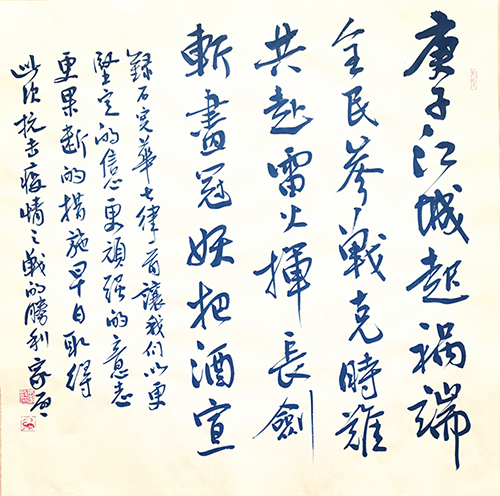 庚子江城起禍端
全民參戰克時難
共赴雷火揮長劍
斬盡冠妖把酒宣
錄石定華七律一首讓我们以更
堅定的信心更頑强的意志
更果斷的措施早日取得
此次抗击疫情之戰的勝利